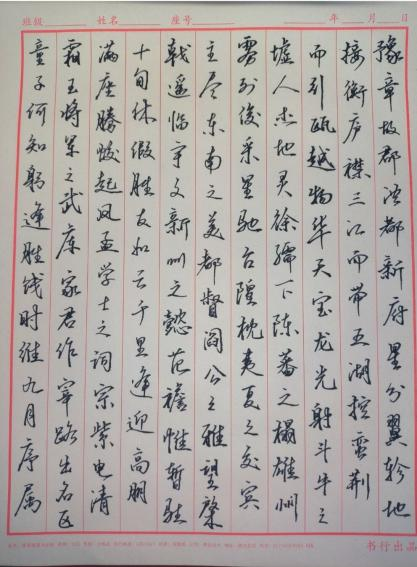 班级 姓名 座号 年 月 日
豫章故郡洪都新府星分翼轸地
接衡庐襟三江而带五湖控蛮荆
而引瓯越物华天宝龙光射斗牛之
墟人杰地灵徐孺下陈蕃之榻雄州
雾列俊采星驰台隍枕夷夏之交宾
主尽东南之美都督阎公之雅望棨
戟遥临宇文新州之懿范襜帷暂驻
十旬休假胜友如云千里逢迎高朋
满座腾蛟起凤孟学士之词宗紫电清
霜王将军之武库家君作宰路出名区
童子何知躬逢胜饯时维九月序属
书行出品